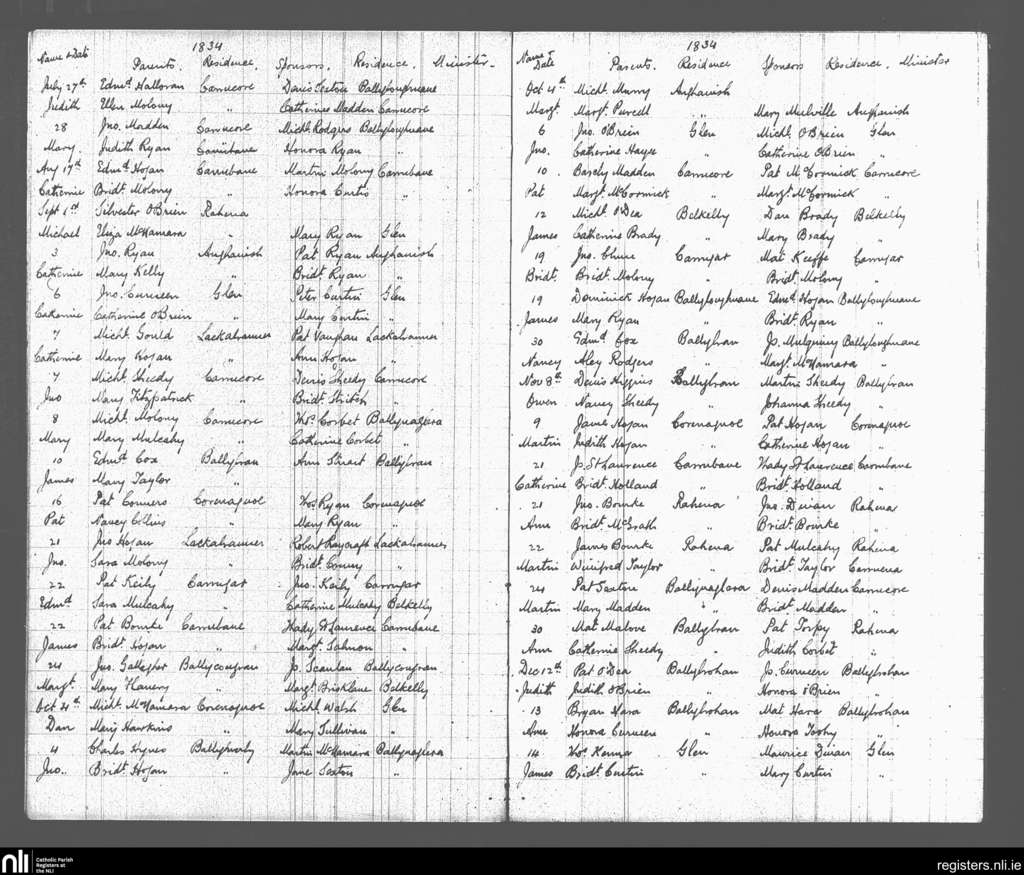 1834
Name & Date Parents. Residence. Sponsors. Residence. Minister.
July 27th Edmd Halloran Carrucore Denis Sexton Ballyloughnane
Judith Ellen Molony Catherine Madden Carrucore
28 Jno. Madden Carrucore Michl. Rodgers Ballyloughnane
Mary. Judith Ryan Carrubane Honora Ryan "
Aug 17th Edmd Hogan Carrubane Martin Molony Carrubane
Catherine Bridt. Molony " Honora Curtis "
Sept 1st Silvester O'Brien Rahena
Michael Eliza McNamara " Mary Ryan Glen
3 Jno. Ryan Aughanish Pat Ryan Aughanish
Catherine Mary Kelly " Bridt. Ryan "
6 Jno. Curreen Glen Peter Curtin Glen
Catherine Catherine O'Brien " Mary Curtin "
7 Michl. Gould Lackabranner Pat Vaughan Lackabranner
Catherine Mary Hogan " Ann Hogan "
7 Michl. Sheedy Carrucore Denis Sheedy Carrucore
Jno Mary Fitzpatrick " Bridt. Stritch "
8 Michl. Molony Carrucore Thos. Corbet Ballynaglera
Mary Mary Mulcahy " Catherine Corbet "
10 Edmd Cox Ballybran Ann Stuart Ballybran
James Mary Taylor "
16 Pat Conners Corenagnoe Thos. Ryan Corenagnoe
Pat Nancy Collins " Mary Ryan "
21 Jno Hogan Lackabranner Robert Roycraft Lackabranner
Jno. Sara Molony " Bridt. Conny "
22 Pat Keily Carrugar Jno. Keily Carrugar
Edmd Sara Mulcahy " Catherine Mulcahy Belkelly
22 Pat Bourke Carrubane Thady St Laurence Carrubane
James Bridt. Hogan " Margt. Salmon "
24 Jno. Gallagher Ballycougran Js. Scanlan Ballycougran
Margt. Mary Flanery " Margt. Bricklane Belkelly
Oct 4th Michl. McNamara Corenagnoe Michl. Walsh Glen
Dan Mary Hawkins " Mary Sullivan "
4 Charles Hynes Ballynorly Martin McNamara Ballynaglera
Jno.. Bridt. Hogan " Jane Sexton "
1834
Name & Date Parents. Residence Sponsors Residence. Minister
Oct 4th Michl. Murry Aughanish
Margt. Margt. Purcell " Mary Mulville Aughanish
6 Jno. O'Brein Glen Michl. O'Brein Glen
Jno. Catherine Hayse " Catherine O'Brien "
10. Bartly Madden Carrucore Pat McCormick Carrucore
Pat Margt. McCormick " Margt. McCormick "
12 Michl. O'Dea Belkelly Dan Brady Belkelly
James Catherine Brady " Mary Brady "
19 Jno. Clune Carrugar Mat Keeffe Carrugar
Bridt. Bridt. Molony " Bridt. Molony "
19 Dominick Hogan Ballyloughnane Edmd. Hogan Ballyloughnane
James Mary Ryan " Bridt. Ryan "
30 Edmd Cox Ballybran Js. Mulquiny Ballyloughnane
Nancy Aley Rodgers " Margt. McNamara "
Nov 8th Denis Higgins Ballybran Martin Sheedy Ballybran
Owen. Nancy Sheedy " Johanna Sheedy "
9 James Hogan Corenagnoe Pat Hogan Corenagnoe
Martin Judith Hogan " Catherine Hogan "
21 Js. St Laurence Carrubane Thady St Laurence Carrubane
Catherine Bridt. Holland " Bridt. Holland "
21 Jno. Bourke Rahena Jno. Dinan Rahena
Ann Bridt. McGrath " Bridt. Bourke "
22 James Bourke Rahena Pat Mulcahy Rahena
Martin Winifred Taylor " Bridt. Taylor
24 Pat Sexton Ballynaglara Denis Madden Carrucore
Martin Mary Madden " Bridt. Madden "
30 Mat Malone Ballybran Pat Torpy Rahena
Ann Catherine Sheedy " Judith Corbet "
Dec 12th Pat O'Dea Ballybrohan Js. Curneen Ballybrohan
Judith Judith O'Brien " Honora O'Brien "
13 Bryan Hara Ballybrohan Mat Hara Ballybrohan
Ann Honora Curneen " Honora Toohy "
14 Thos. Kenna Glen Maurice Dinan Glen
James Bridt. Curtin " Mary Curtin "
nli Catholic Parish Registers at the NLI
registers.nli.ie